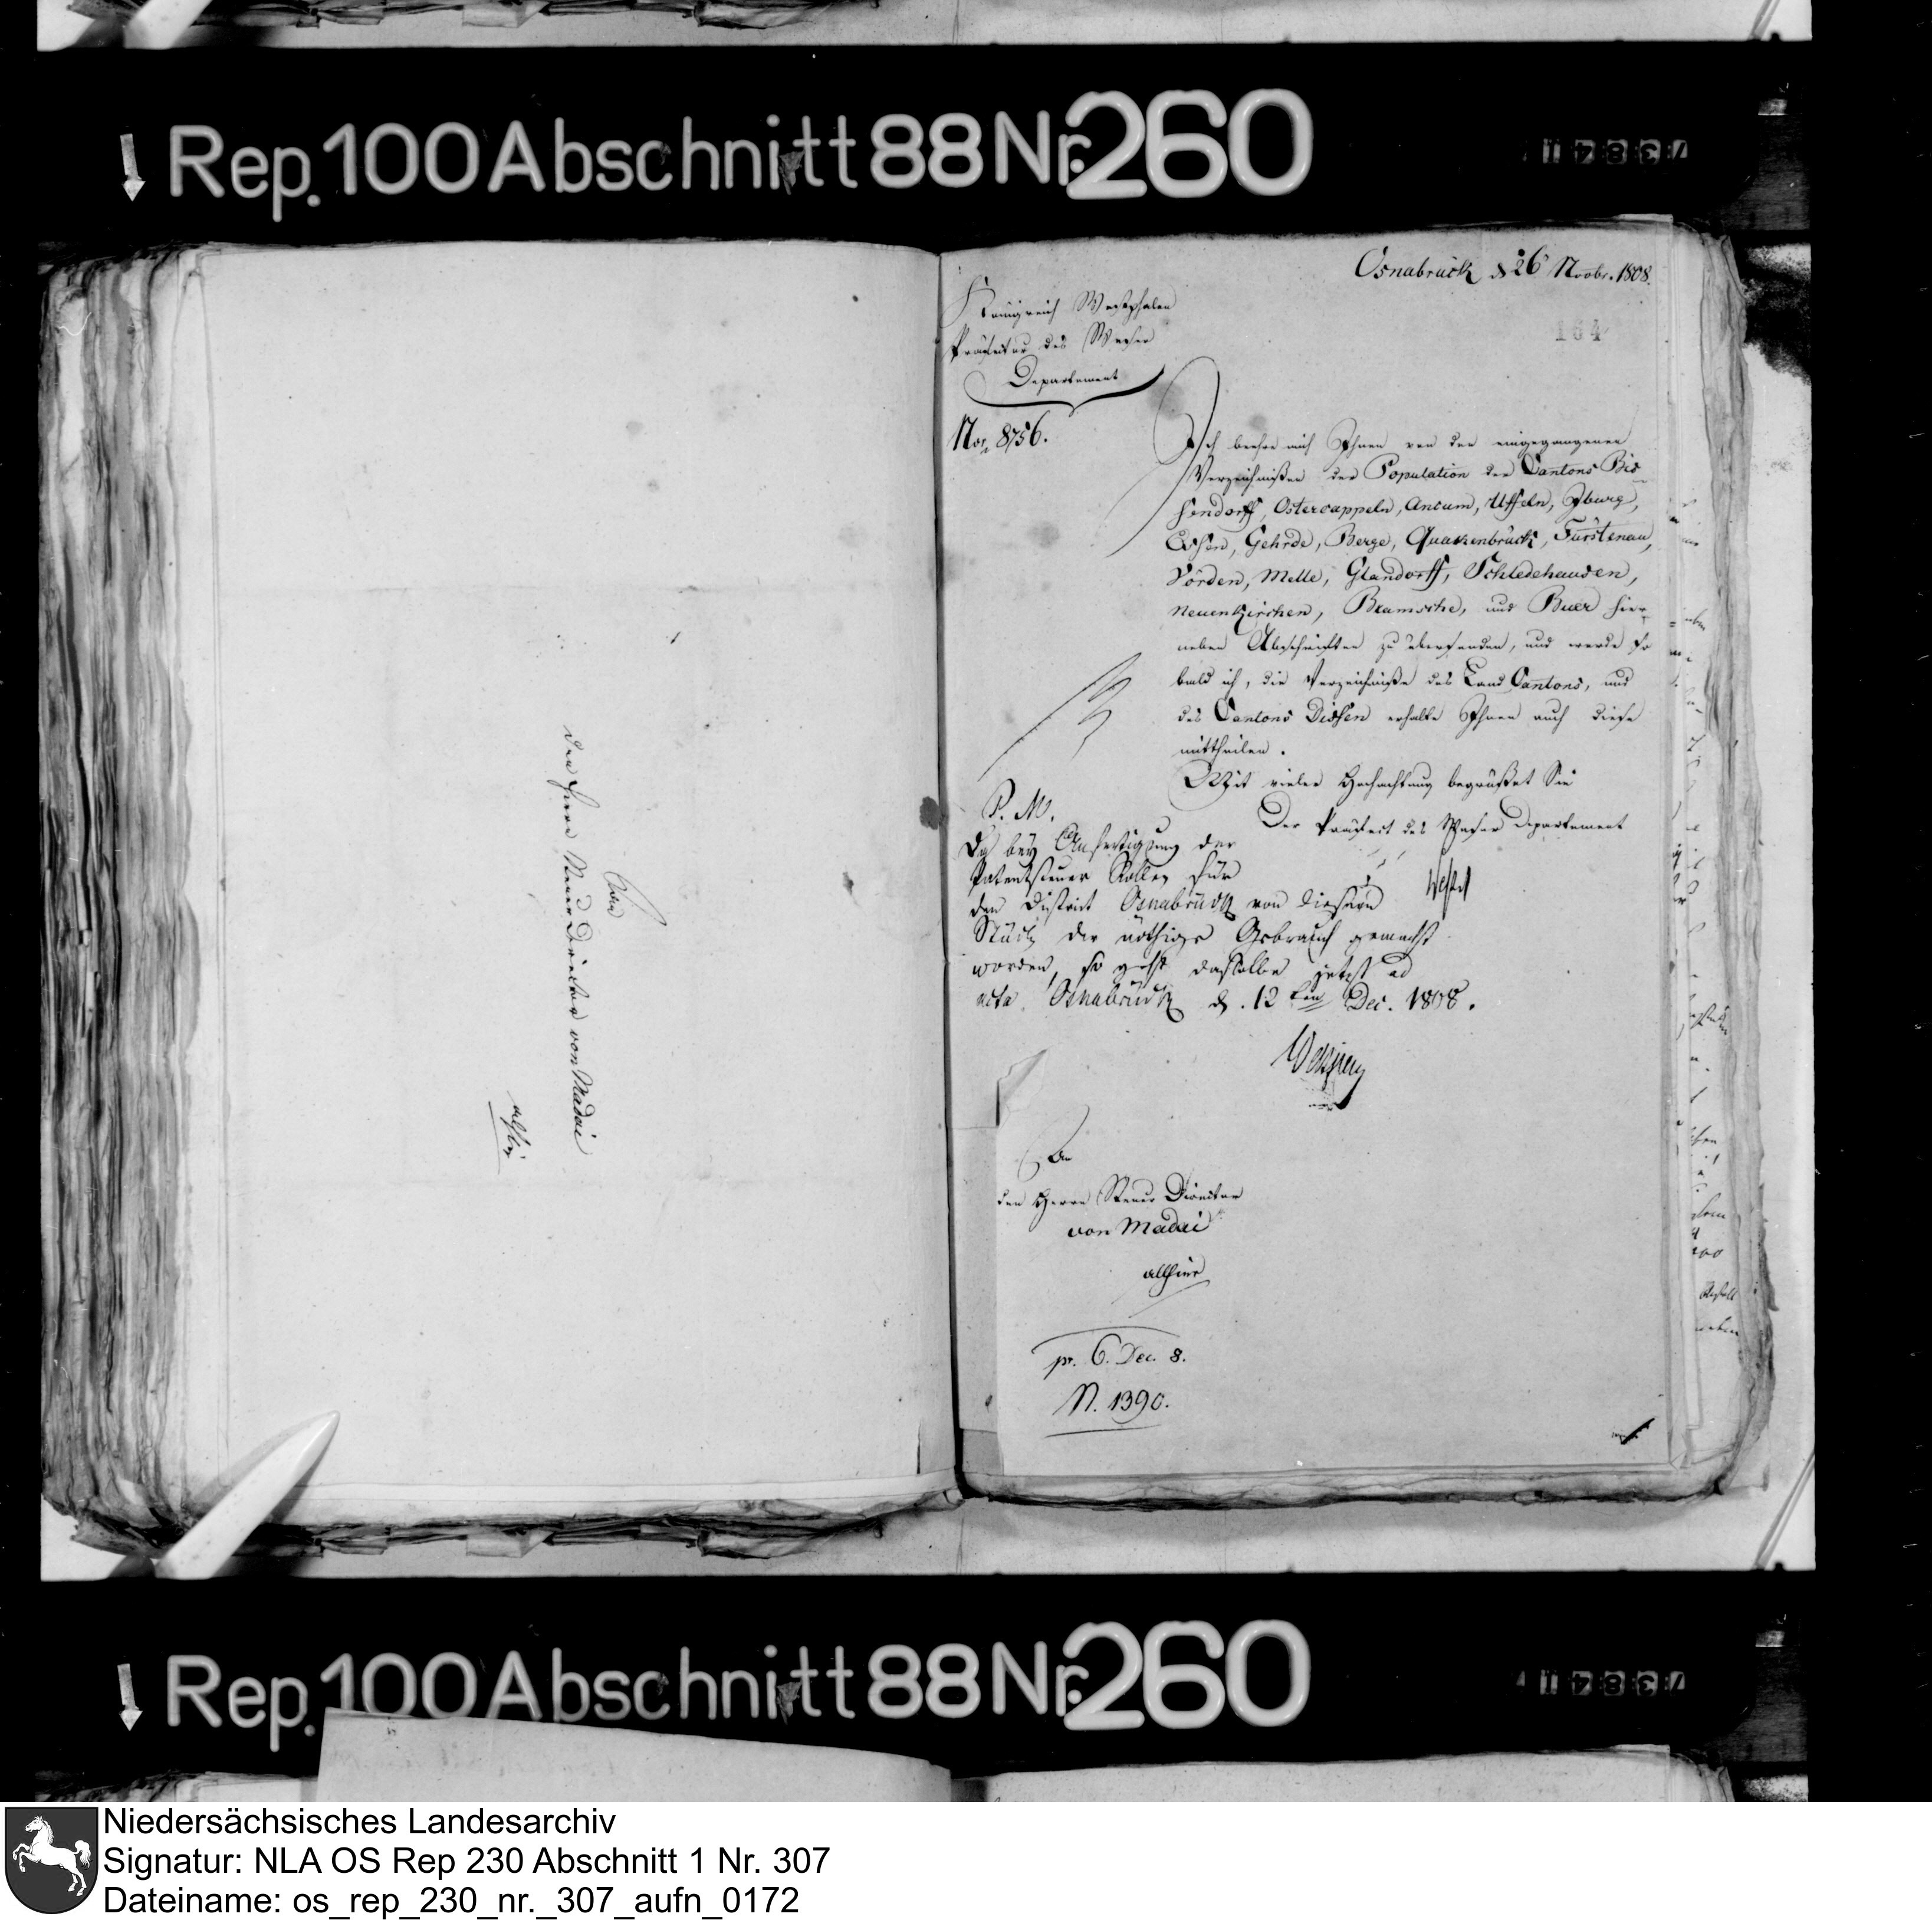 Rep. 100 Abschnitt 88 Nr. 260
Osnabrück d 26 Novbr. 1808.
164
Königreich Westphalen
Präfectur des Weser
Departement
Nro. 8756.
Ich beehre mich Ihnen von den eingegangenen
Verzeichnißen der Population der Cantons Bis-
sendorff, Ostercappeln, Ancum, Uffeln, Iburg,
Essen, Gehrde, Berge, Quakenbrück, Fürstenau,
Vörden, Melle, Glandorff, Schledehausen,
Neuenkirchen, Bramsche, und Buer hier-
neben Abschriften zu übersenden, und werde so
bald ich, die Verzeichniße des Land Cantons, und
des Cantons Dissen erhalte Ihnen auch diese
mittheilen.
Mit vieler Hochachtung begrüßet Sie
Der Präfect des Weser Departement
P. M.
Da bey Anfertigung der
Patentsteuer Rollen für
den District Osnabrück von diesem
Stück der nöthige Gebrauch gemacht
worden, so geht dasselbe jetzt ad
acta. Osnabrück d. 12ten Dec. 1808.
An
den Herrn Steuer Director
von Madai
allhier
pr. 6. Dec. 8.
N. 1390.
An
den Herrn Steuer Director von Madai
allhier
Rep. 100 Abschnitt 88 Nr. 260
Niedersächsisches Landesarchiv
Signatur: NLA OS Rep 230 Abschnitt 1 Nr. 307
Dateiname: os_rep_230_nr._307_aufn_0172